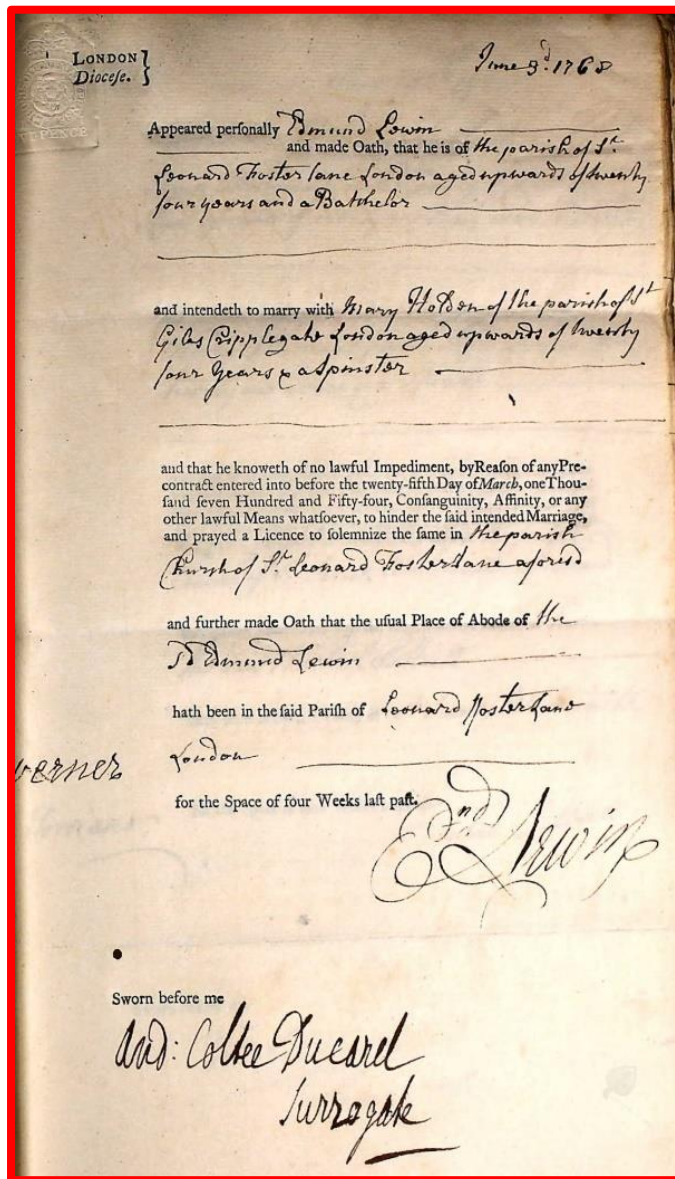 LONDON
Diocese.
June 3d. 1768
PENCE
Appeared personally Edmund Lewin
and made Oath, that he is of the parish of St.
Leonard Foster Lane London aged upwards of twenty
four years and a Batchelor
and intendeth to marry with Mary Holden of the parish of St
Giles Cripplegate London aged upwards of twenty
four Years & a Spinster
and that he knoweth of no lawful Impediment, by Reason of any Pre-
contract entered into before the twenty-fifth Day of March, one Thou-
sand seven Hundred and Fifty-four, Consanguinity, Affinity, or any
other lawful Means whatsoever, to hinder the said intended Marriage,
and prayed a Licence to solemnize the same in the parish
Church of St. Leonard Foster Lane aforesd
and further made Oath that the usual Place of Abode of the
sd Edmund Lewin
hath been in the said Parish of Leonard Foster Lane
London
verner
for the Space of four Weeks last past.
Edmd. Lewin
Sworn before me
And: Coltee Ducarel
Surrogate